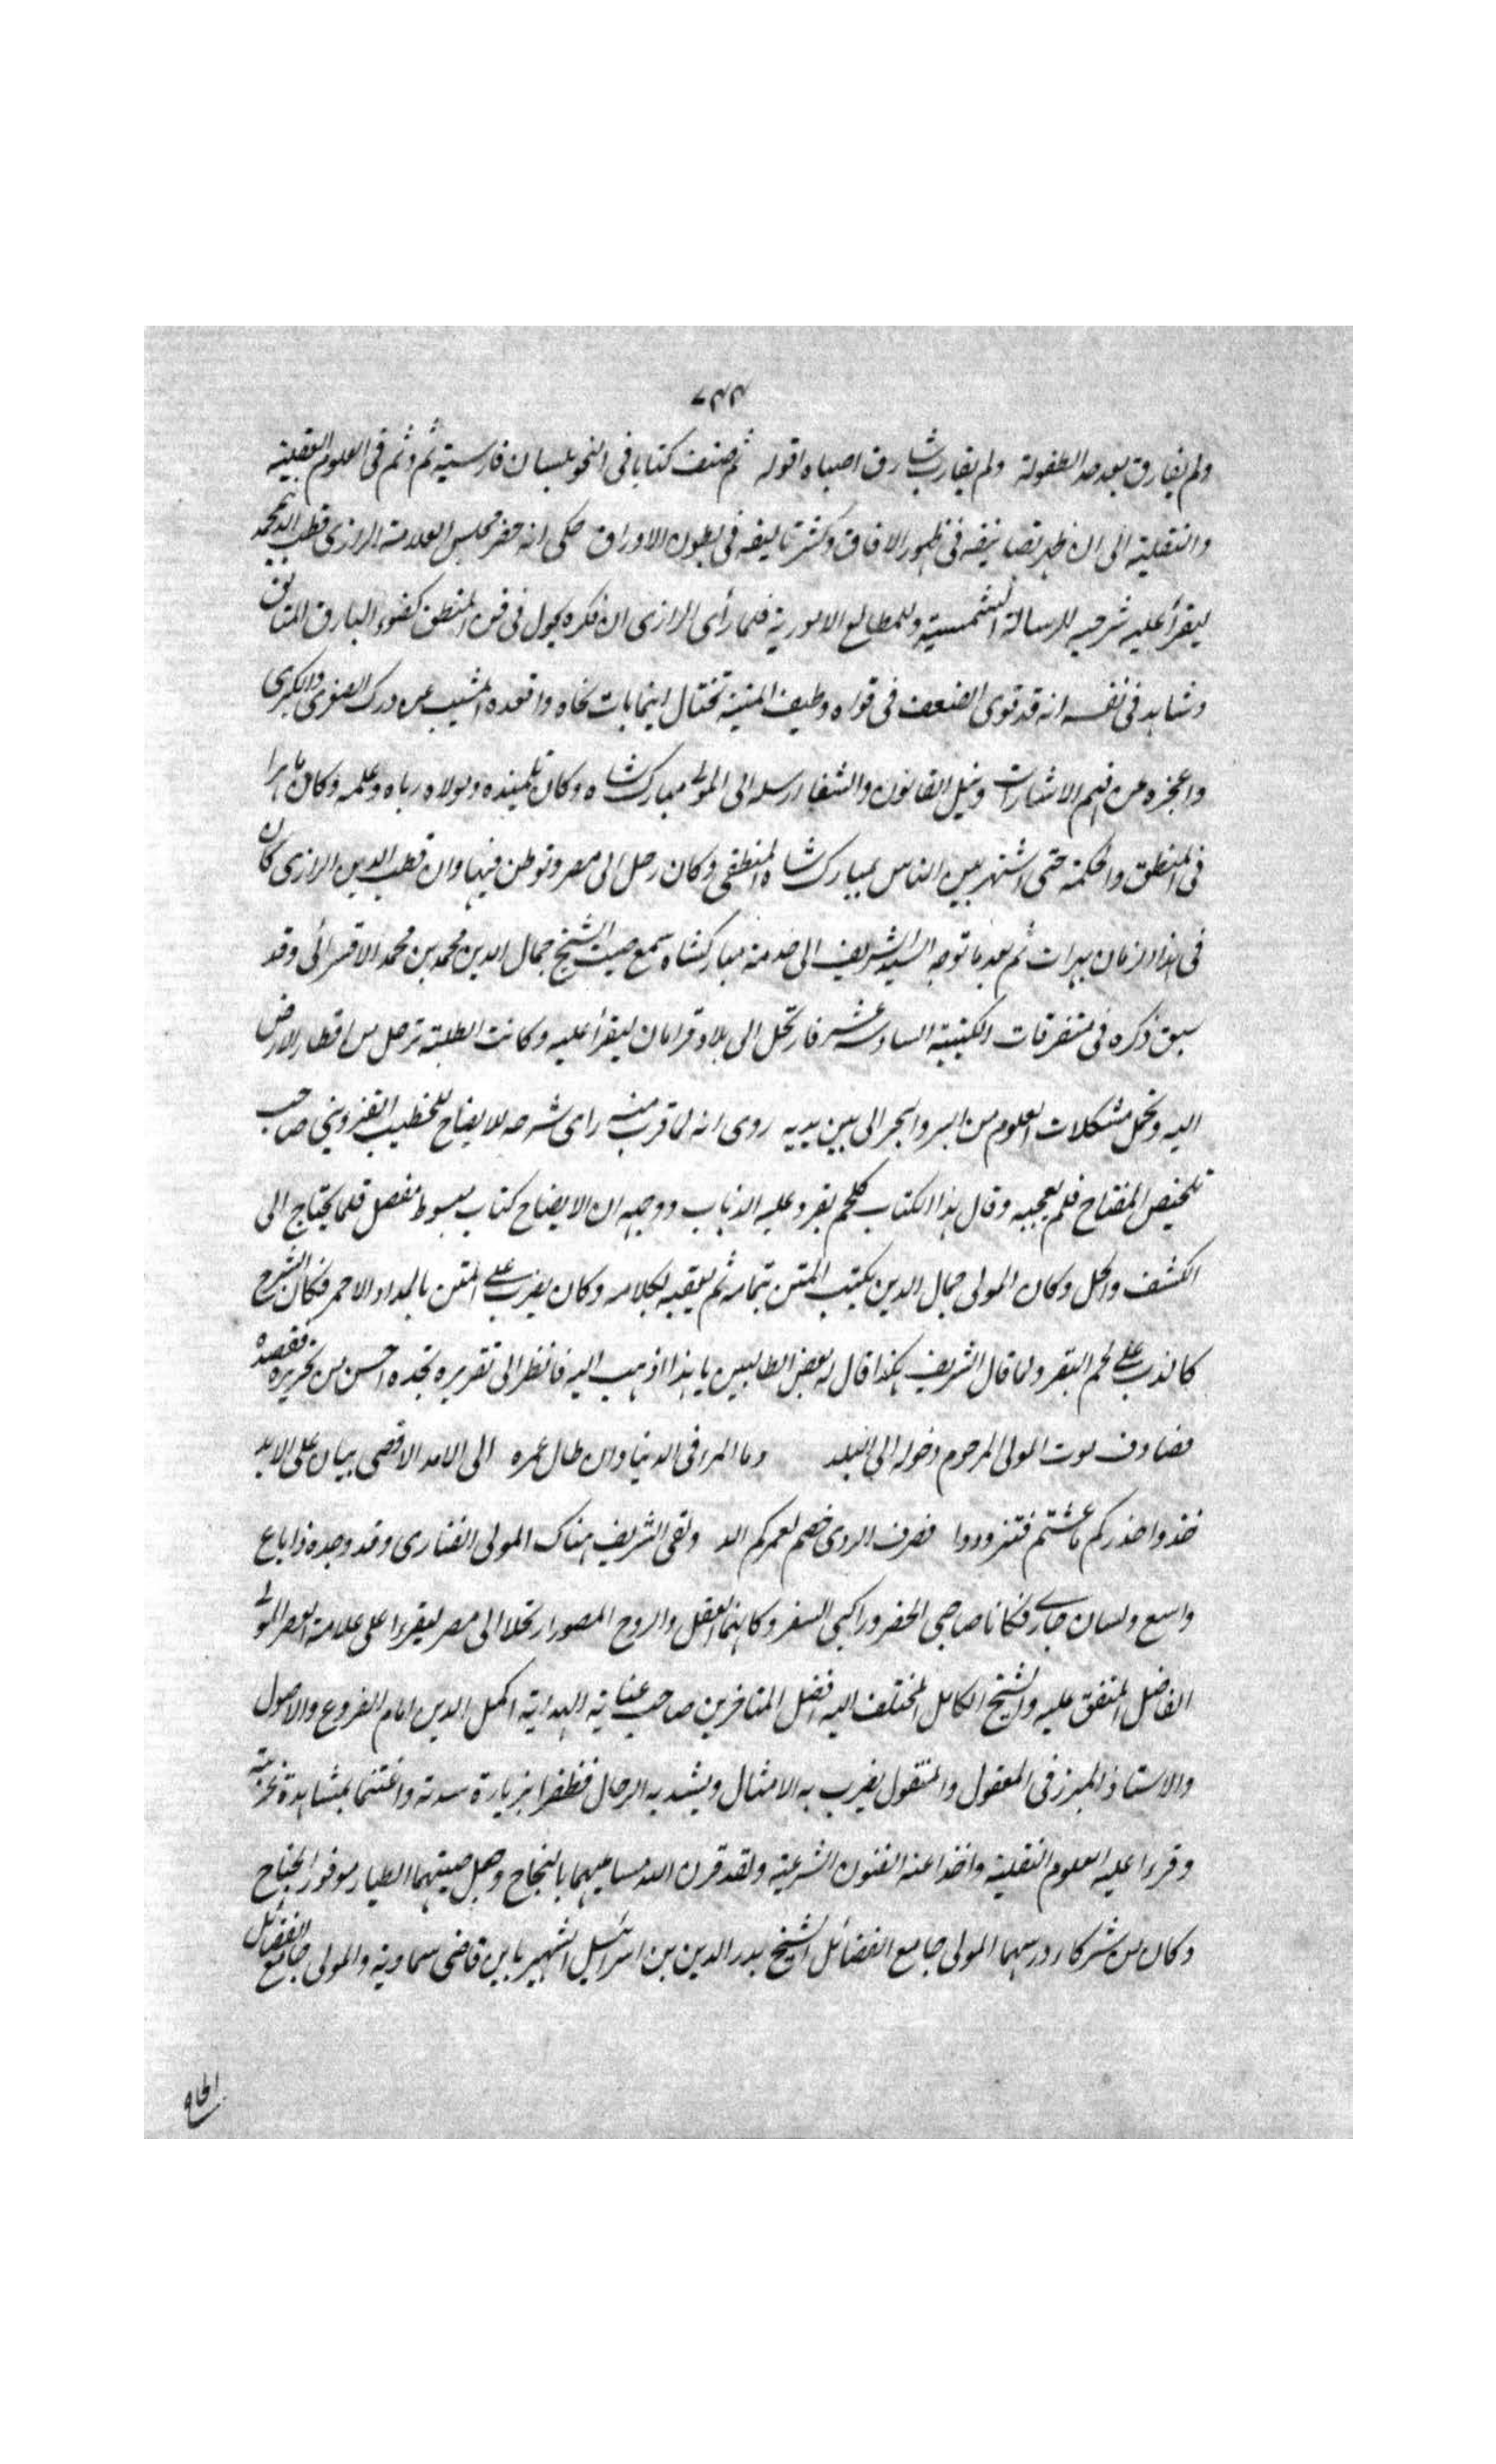 ٧٣٣
ولم يفارق بعد حد الطفولة ولم يقارب شارق اصباه افوله ثم صنف كتابا فى النحو بلسان فارسية ثم وثم فى العلوم العقلية
والنقلية الى ان ظهر تصانيفه فى ظهور الافاق وكثر تاليفه فى بطون الاوراق حكى انه حضر مجلس العلامة الرازى قطب الدين محمد
ليقرأ عليه شرحيه للرسالة الشمسية وللمطالع الاموريه فلما رأى الرازى ان فكره يجول فى فن المنطق كضوء البارق المتالق
وشاهد فى نفسه انه قد قوى الضعف فى قواه وطيف المنية تختال اينما بات تخاه واقعده المشيب عن درك الصغرى والكبرى
واعجزه عن فهم الاشارات ونيل القانون والشفا ارسله الى المولى مبارك شاه وكان تلميذه ومولاه رباه وعلمه وكان ماهرا
فى المنطق والحكمة حتى اشتهر بين الناس بمبارك شاه المنطقى وكان رحل الى مصر وتوطن فيها وان قطب الدين الرازى كان
فى هذا الزمان بهرات ثم بعد ما توجه السيد الشريف الى خدمة مباركشاه سمع صيت الشيخ جمال الدين محمد بن محمد الاقسرائى وقد
سبق ذكره فى متفرقات الكتيبة السادسة عشر فارتحل الى بلاد قرامان ليقرأ عليه وكانت الطلبة ترحل من اقطار الارض
اليه وتحمل مشكلات العلوم من البر والبحر الى بين يديه روى انه لما قرب منه راى شرحه للايضاح للخطيب القزوينى صاحب
تلخيص المفتاح فلم يعجبه وقال هذا الكتاب كلحم بقر وعليه الذباب ووجهه ان الايضاح كتاب مبسوط مفصل قلما يحتاج الى
الكشف والحل وكان المولى جمال الدين يكتب المتن بتمامه ثم يعقبه بكلامه وكان يضرب على المتن بالمداد الاحمر فكان الشرح
كالذباب على لحم البقر ولما قال الشريف هكذا قال له بعض الطالبين يا هذا اذهب اليه فانظر الى تقريره تجده احسن من تحريره فقصده
فصادف موت المولى المرحوم دخوله الى البلد وما المرء فى الدنيا وان طال عمره الى الامد الاقصى بباق على الابد
خذوا حذركم ما عشتم فتزودوا فصرف الردى خصم لعمركم الد ولقى الشريف هناك المولى الفنارى وقد وجده ذا باع
واسع ولسان جارى فكانا صاحبى الحضر وراكبى السفر وكانهما العقل والروح المصور ارتحلا الى مصر ليقرءا على علامة العصر المولى
الفاضل المتفق عليه والشيخ الكامل المختلف اليه افضل المتاخرين صاحب عناية الهداية اكمل الدين امام الفروع والاصول
والاستاذ المبرز فى المعقول والمنقول يضرب به الامثال ويشد به الرحال فظفرا بزيارة سدته واغتنما بمشاهدة
وقرءا عليه العلوم النقلية واخذا عنه الفنون الشرعية ولقد قرن الله مساعيهما بالنجاح وجعل صيتهما الطيار موفور الجناح
وكان من شركاء درسهما المولى جامع الفضائل الشيخ بدر الدين بن اسرائيل الشهير بابن قاضى سماونه والمولى جامع الفضائل